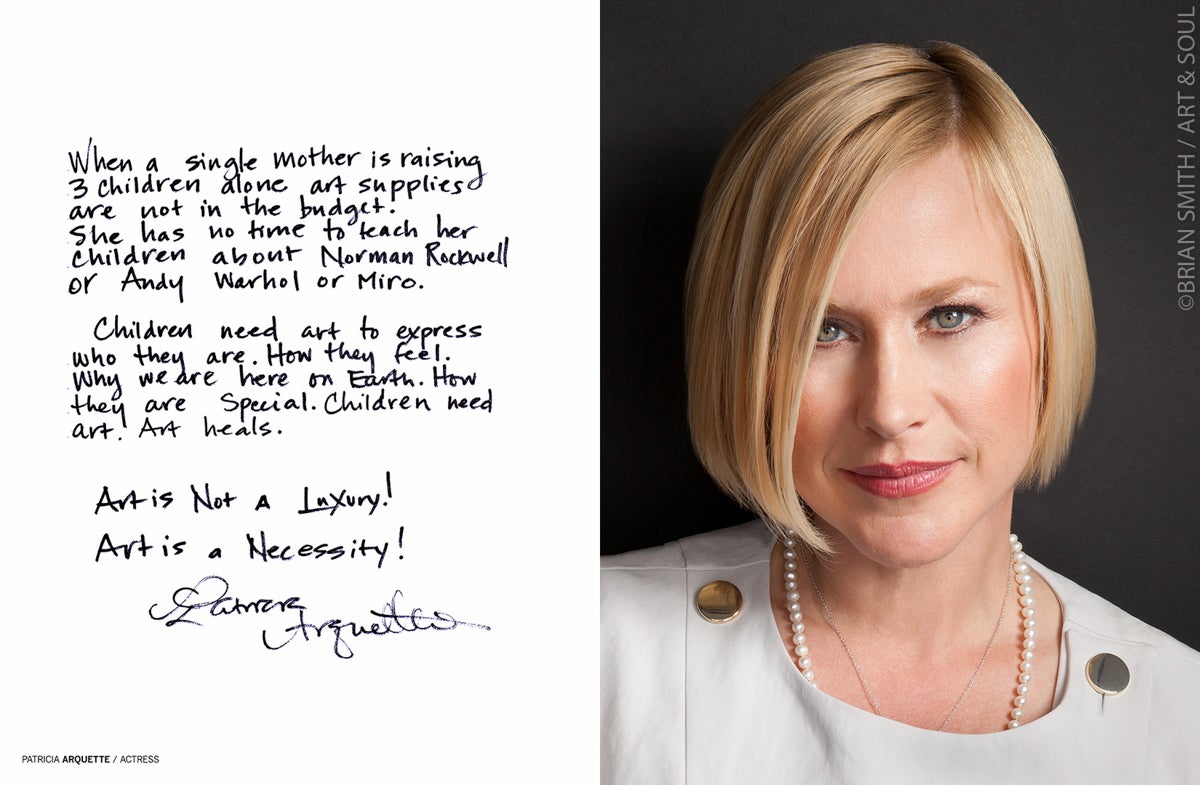 When a single mother is raising
3 children alone art supplies
are not in the budget.
She has no time to teach her
children about Norman Rockwell
or Andy Warhol or Miro.
Children need art to express
who they are. How they feel.
Why we are here on Earth. How
they are Special. Children need
art! Art heals.
Art is Not A Luxury!
Art is a Necessity!
Patricia
Arquette
PATRICIA ARQUETTE / ACTRESS
©BRIAN SMITH / ART & SOUL